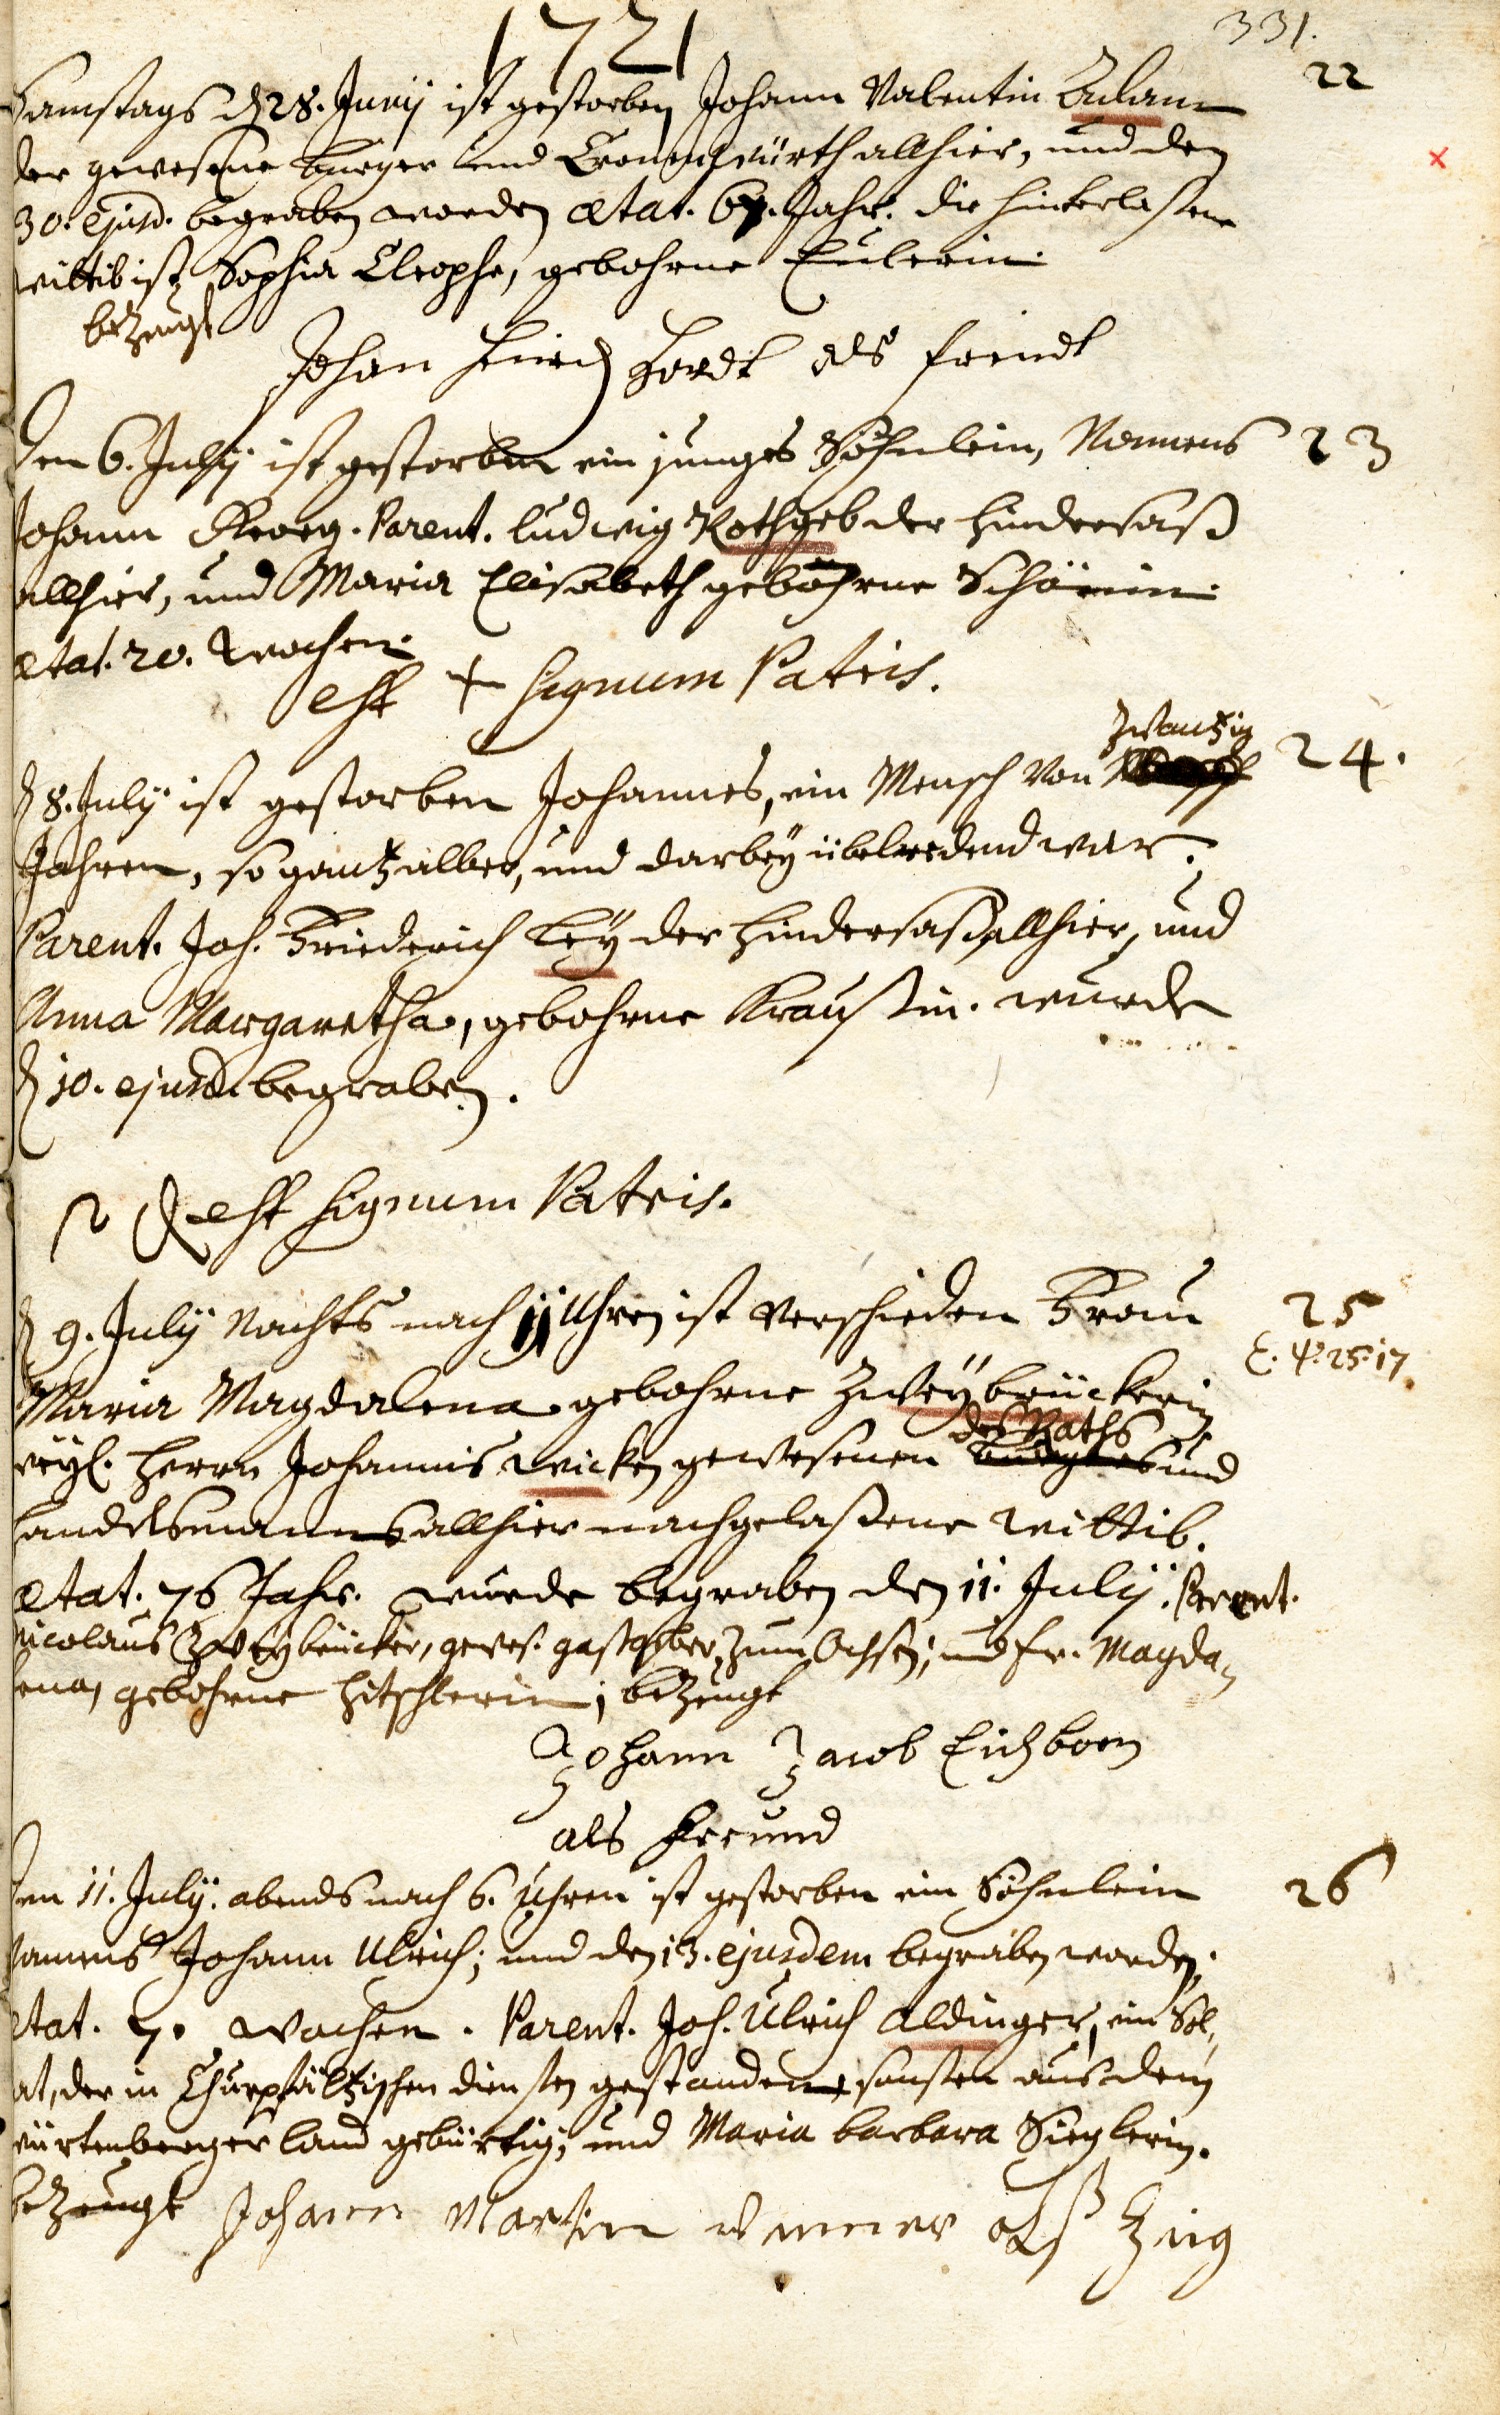 1721
331.
Samstags dh 28. Junij ist gestorben Johann Valentin
22
der gewesene burger und Cronenwürth allhier, und den
30. ejusd. begraben worden ætat. 67. Jahr. die hinterlaßene
wittib ist Sophia Cleophe, gebohrne Eulerin.
bezeugt
Johan Hinrich als freindt
Den 6. Julij ist gestorben ein junges Söhnlein, Nammens
23
Johann Georg. Parent. Ludwig Rothgeb der hindersaß
allhier, und Maria Elisabeth gebohrne
ætat. 20. wochen.
est + signum Patris.
zwantzig
24.
d 8. July ist gestorben Johannes, ein Mensch von
Jahren, so gantz alber, und darbey übelredend war.
Parent. Joh. Friederich Ley der hindersaß allhier, und
Anna Margaretha, gebohrne Kraußin. wurde
d 10. ejusd. begraben.
est signum Patris.
d 9. Julij Nachts nach 11 Uhren ist verschieden Frau
25
Maria Magdalena gebohrne Zweybrückerin,
ψ. 25. 17
des Raths
weyl. Herrn Johannis Wicken gewesenen und
handelsmanns allhier nachgelaßene Wittib.
ætat. 76 Jahr. wurde begraben den 11. Julij. Parent.
Nicolaus Zweybrücker, gewes. gastgeber zum Ochsen, und Fr. Magda-
lena, gebohrne Hitschlerin; bezeugt
Johann Jacob Eichborn
als Freund
Den 11. Julij. abends nach 6. Uhren ist gestorben ein Söhnlein
26
Namens Johann Ulrich; und den 13. ejusdem begraben worden.
ætat. 7. wochen. Parent. Joh. Ulrich Aldinger, ein Sol-
dat, der in Churpfältzischen diensten gestanden sonsten aus dem
würtenberger land gebürtig, und Maria barbara Sieglerin.
bezeugt Johann Martin alß Zeig